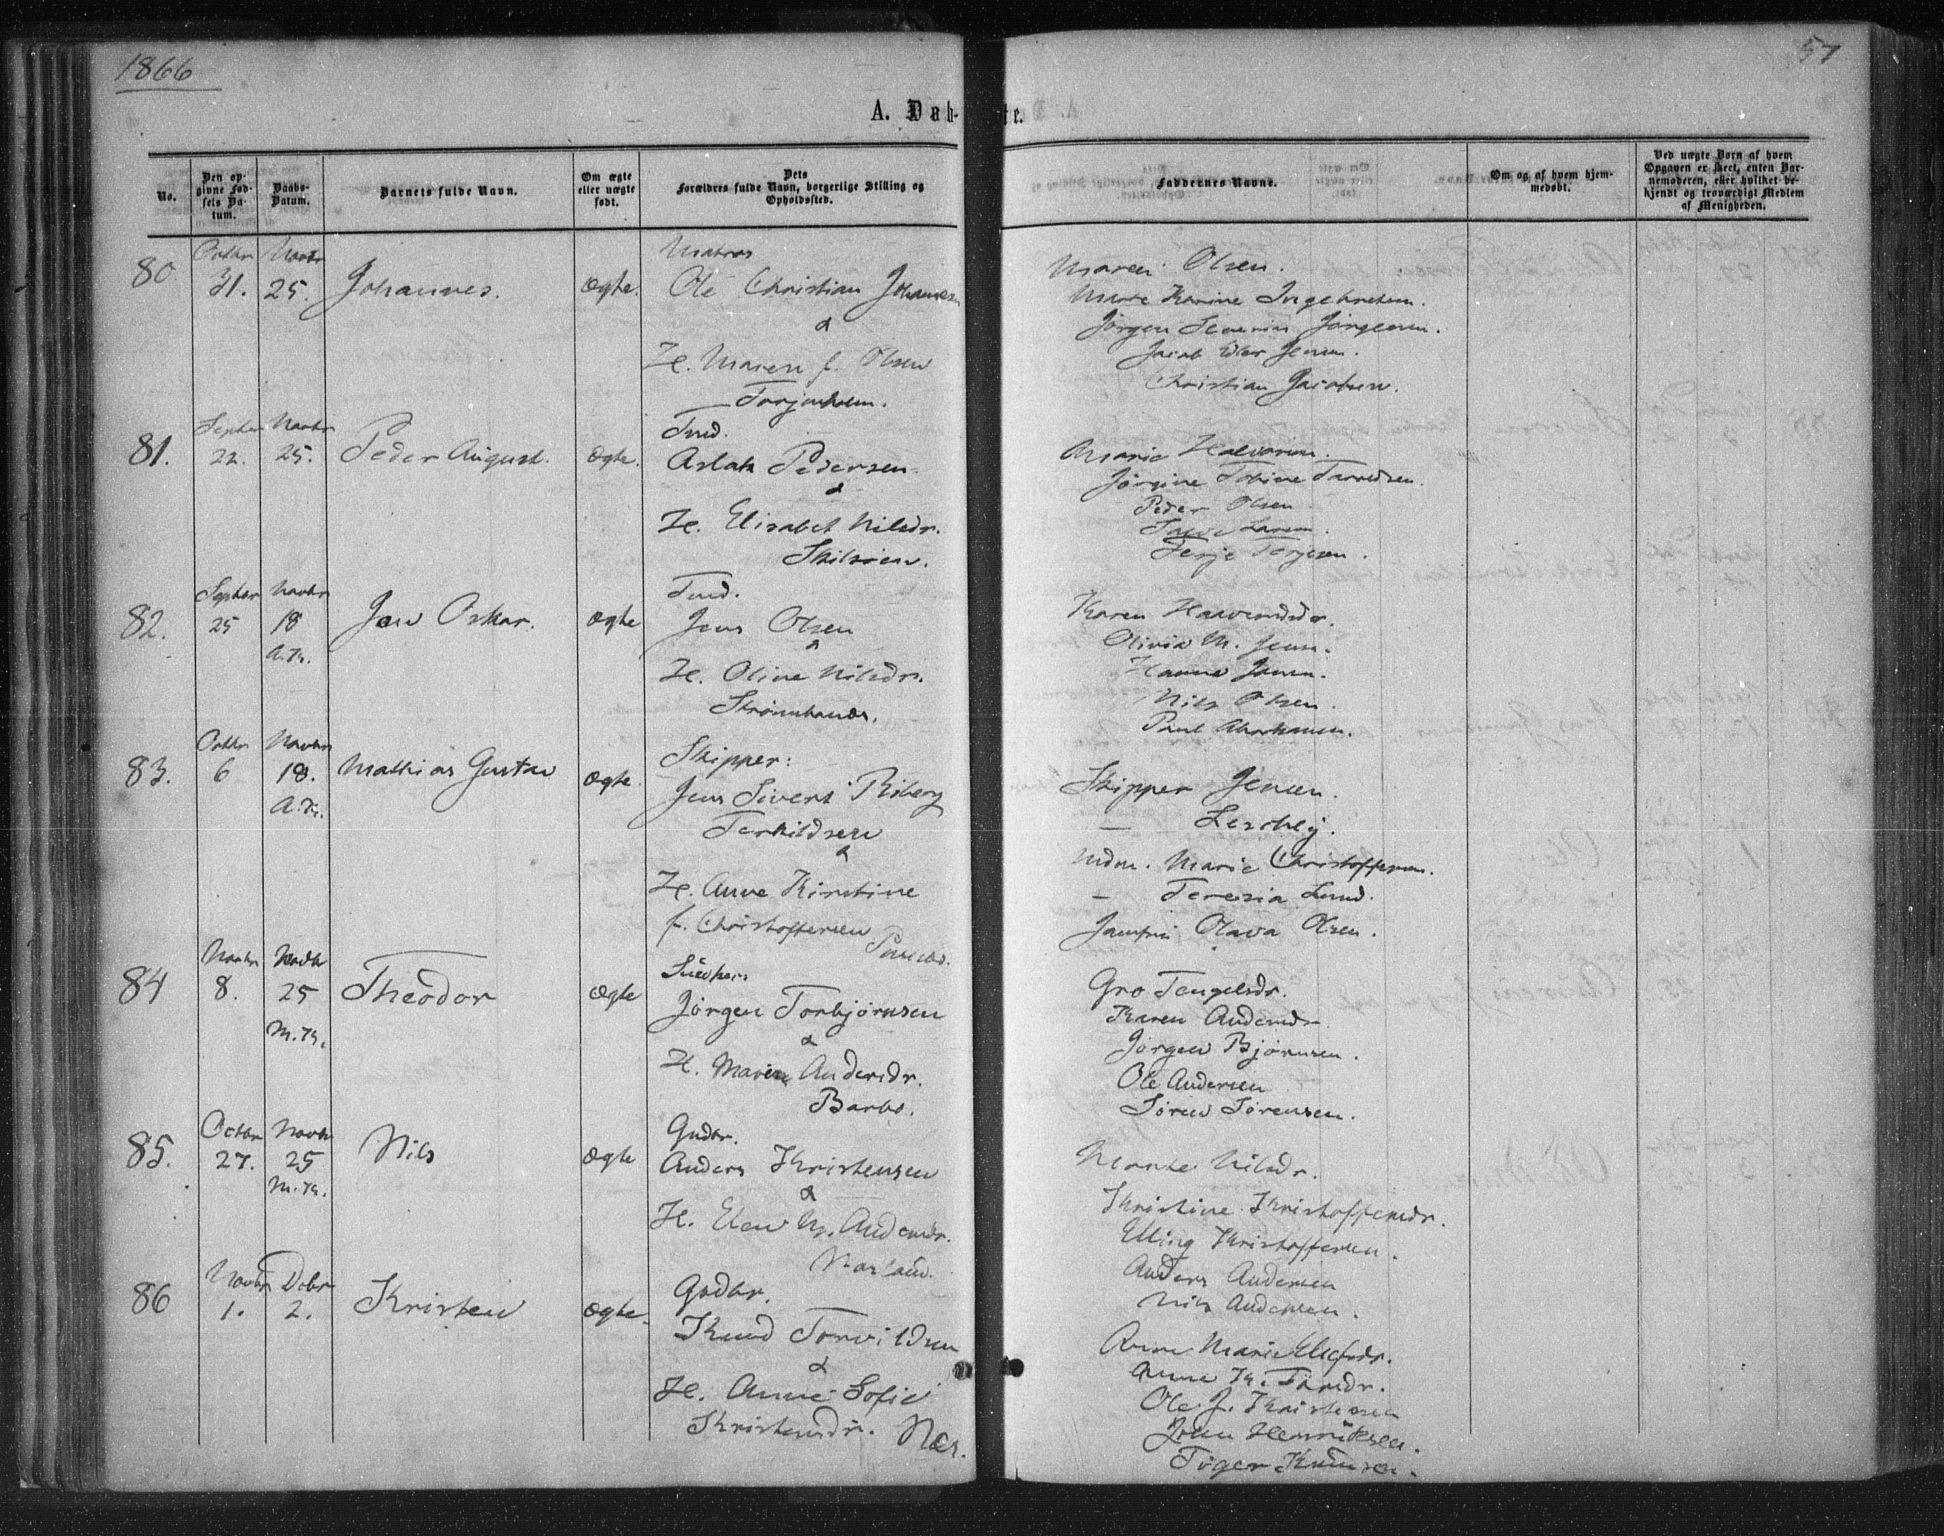 1866
57
A. Døbte.
No.
Den opgivne Fødsels Datum.
Daabs-Datum.
Barnets fulde Navn.
Om ægte eller uægte født.
Dets Forældres fulde Navn, borgerlige Stilling og Opholdssted.
Faddernes Navne.
Om og af hvem hjemmedøbt.
Ved uægte Børn af hvem Opgaven er skeet, enten Barnemoderen, eller hvilket bekjendt og troværdigt Medlem af Menigheden.
80 Octbr 31. Novbr 25. Johannes. Ægte. Matros
Ole Christian Johannesen
&
H. Maren f. Olsen
Torjenholm.
Maren Olsen.
Mare Karine Ingebretsen.
Jørgen Severin Jørgensen.
Jacob Jensen.
Christian Jacobsen.
81. Septbr 22. Novbr 25. Peder August. Ægte. Tmd.
Aslak Pedersen
&
H. Elisabet Nilsdr.
Skilsøen.
Marie Halvorsen.
Jørgine Tobine Tarredsen.
Peder Olsen
Larsen.
Terje Terjesen.
82. Septbr 25 Novbr 18 A.K. Jens Oskar. Ægte Tmd.
Jens Olsen
&
H. Oline Nilsdr.
Strømsbunæs.
Karen Haavorsdr.
Olivia M. Jensen.
Hanna Jensen.
Nils Olsen.
Paul Abrahamsen.
83. Octbr 6 Novbr 18. A.K. Mathias Gustav Ægte. Skipper:
Jens Sivert Riberg
Terkildsen
&
H. Anne Kirstine
f. Christoffersen
Skipper Jensen.
— Leschly.
Mdm. Marie Christoffersen.
— Teresia Lund.
Jomfru Olava Olsen.
84 Novbr 8. Novbr 25 M.K. Theodor Ægte Snedker
Jørgen Torbjørnsen
&
H. Maren Andersdr.
Barbo.
Gro Tengelsdr.
Karen Andersdr.
Jørgen Bjørnsen.
Ole Andersen
Søren Sørensen.
85. Octbr 27. Novbr 25 M.K. Nils Ægte Gudbr.
Anders Kristensen
&
H. Elen M. Andersdr.
Næsland.
Marte Nilsdr.
Kristine Kristoffersdr.
Elling Kristoffersen.
Anders Andersen
Nils Andersen.
86 Novbr 1. Debr 2. Kristen Ægte. Gudbr.
Knud Torvildsen
&
H. Anne Sofie
Kristensdr. Næs.
Anne Marie Elefsdr.
Anne K. Torsdr.
Ole J. Kristensen
John Henriksen.
Tøger Knudsen.